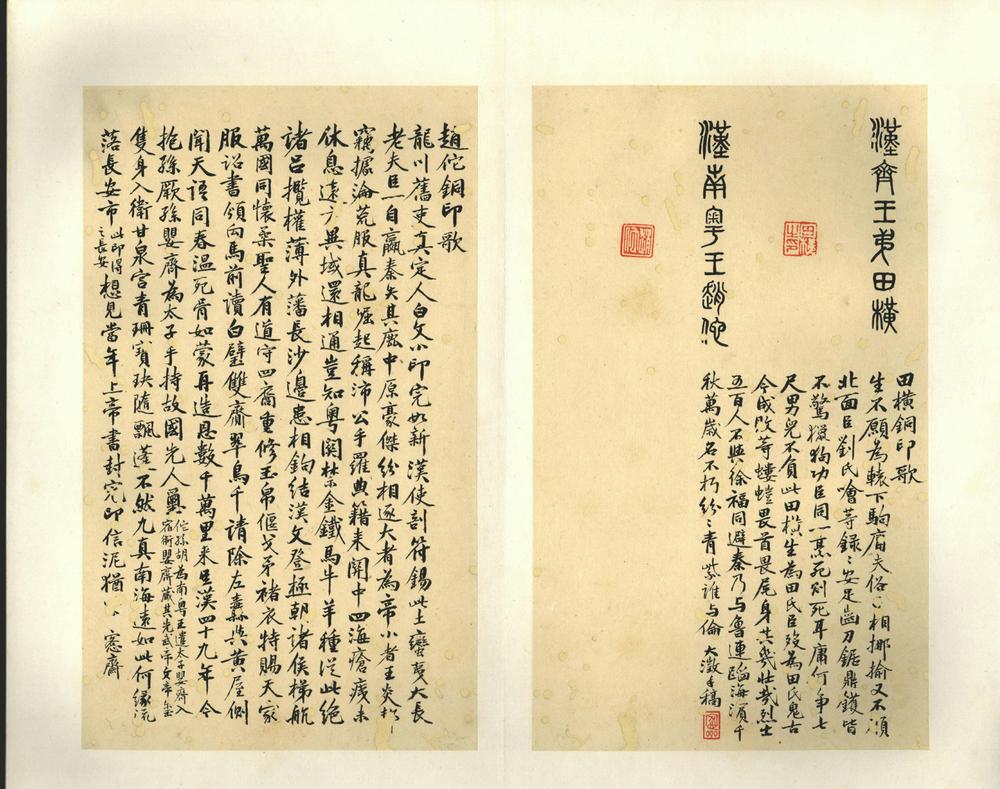 漢齊王弟田橫
漢南粵王趙佗
田橫銅印歌
生不願為轅下駒庸夫俗子相揶揄又不須
北面臣劉氏噲等錄錄安足齒刀鋸鼎鑊皆
不驚掇狗功臣同一烹死則死耳庸何爭七
尺男兒不負此田橫生為田氏臣歿為田氏鬼古
今成敗等螻螘畏首畏尾身其幾壯哉烈士
五百人不與徐福同避秦乃与魯連蹈海濱千
秋萬歲名不朽紛紛青紫誰与倫 大澂手稿
趙佗銅印歌
龍川舊吏真定人白文小印完如新漢使剖符錫此土蠻夷大長
老夫臣一自嬴秦失其鹿中原豪傑紛相逐大者為帝小者王炎炎
竊據淪荒服真龍崛起稱沛公手羅典籍來關中四海瘡痍未
休息遠方異域還相通豈知粵關禁金鐵馬牛羊種從此絕
諸呂攬權薄外藩長沙邊患相鉤結漢文登極朝諸侯梯航
萬國同懷柔聖人有道守四裔重修玉帛偃戈矛褚衣特賜天家
服詔書領向馬前讀白璧雙齎翠鳥千請除左纛與黃屋側
聞天語同春溫死骨如蒙再造恩數千萬里來生漢四十九年今
抱孫厥孫嬰齊為太子手持故國先人璽佗孫胡為南粵王遣太子嬰齊入宿衛嬰齊藏其先武帝文帝璽
隻身入衛甘泉宮青珊寶玦隨飄蓬不然九真南海遠如此何緣流
落長安市此印得之長安想見當年上帝書封完印信泥猶紫 愙齋